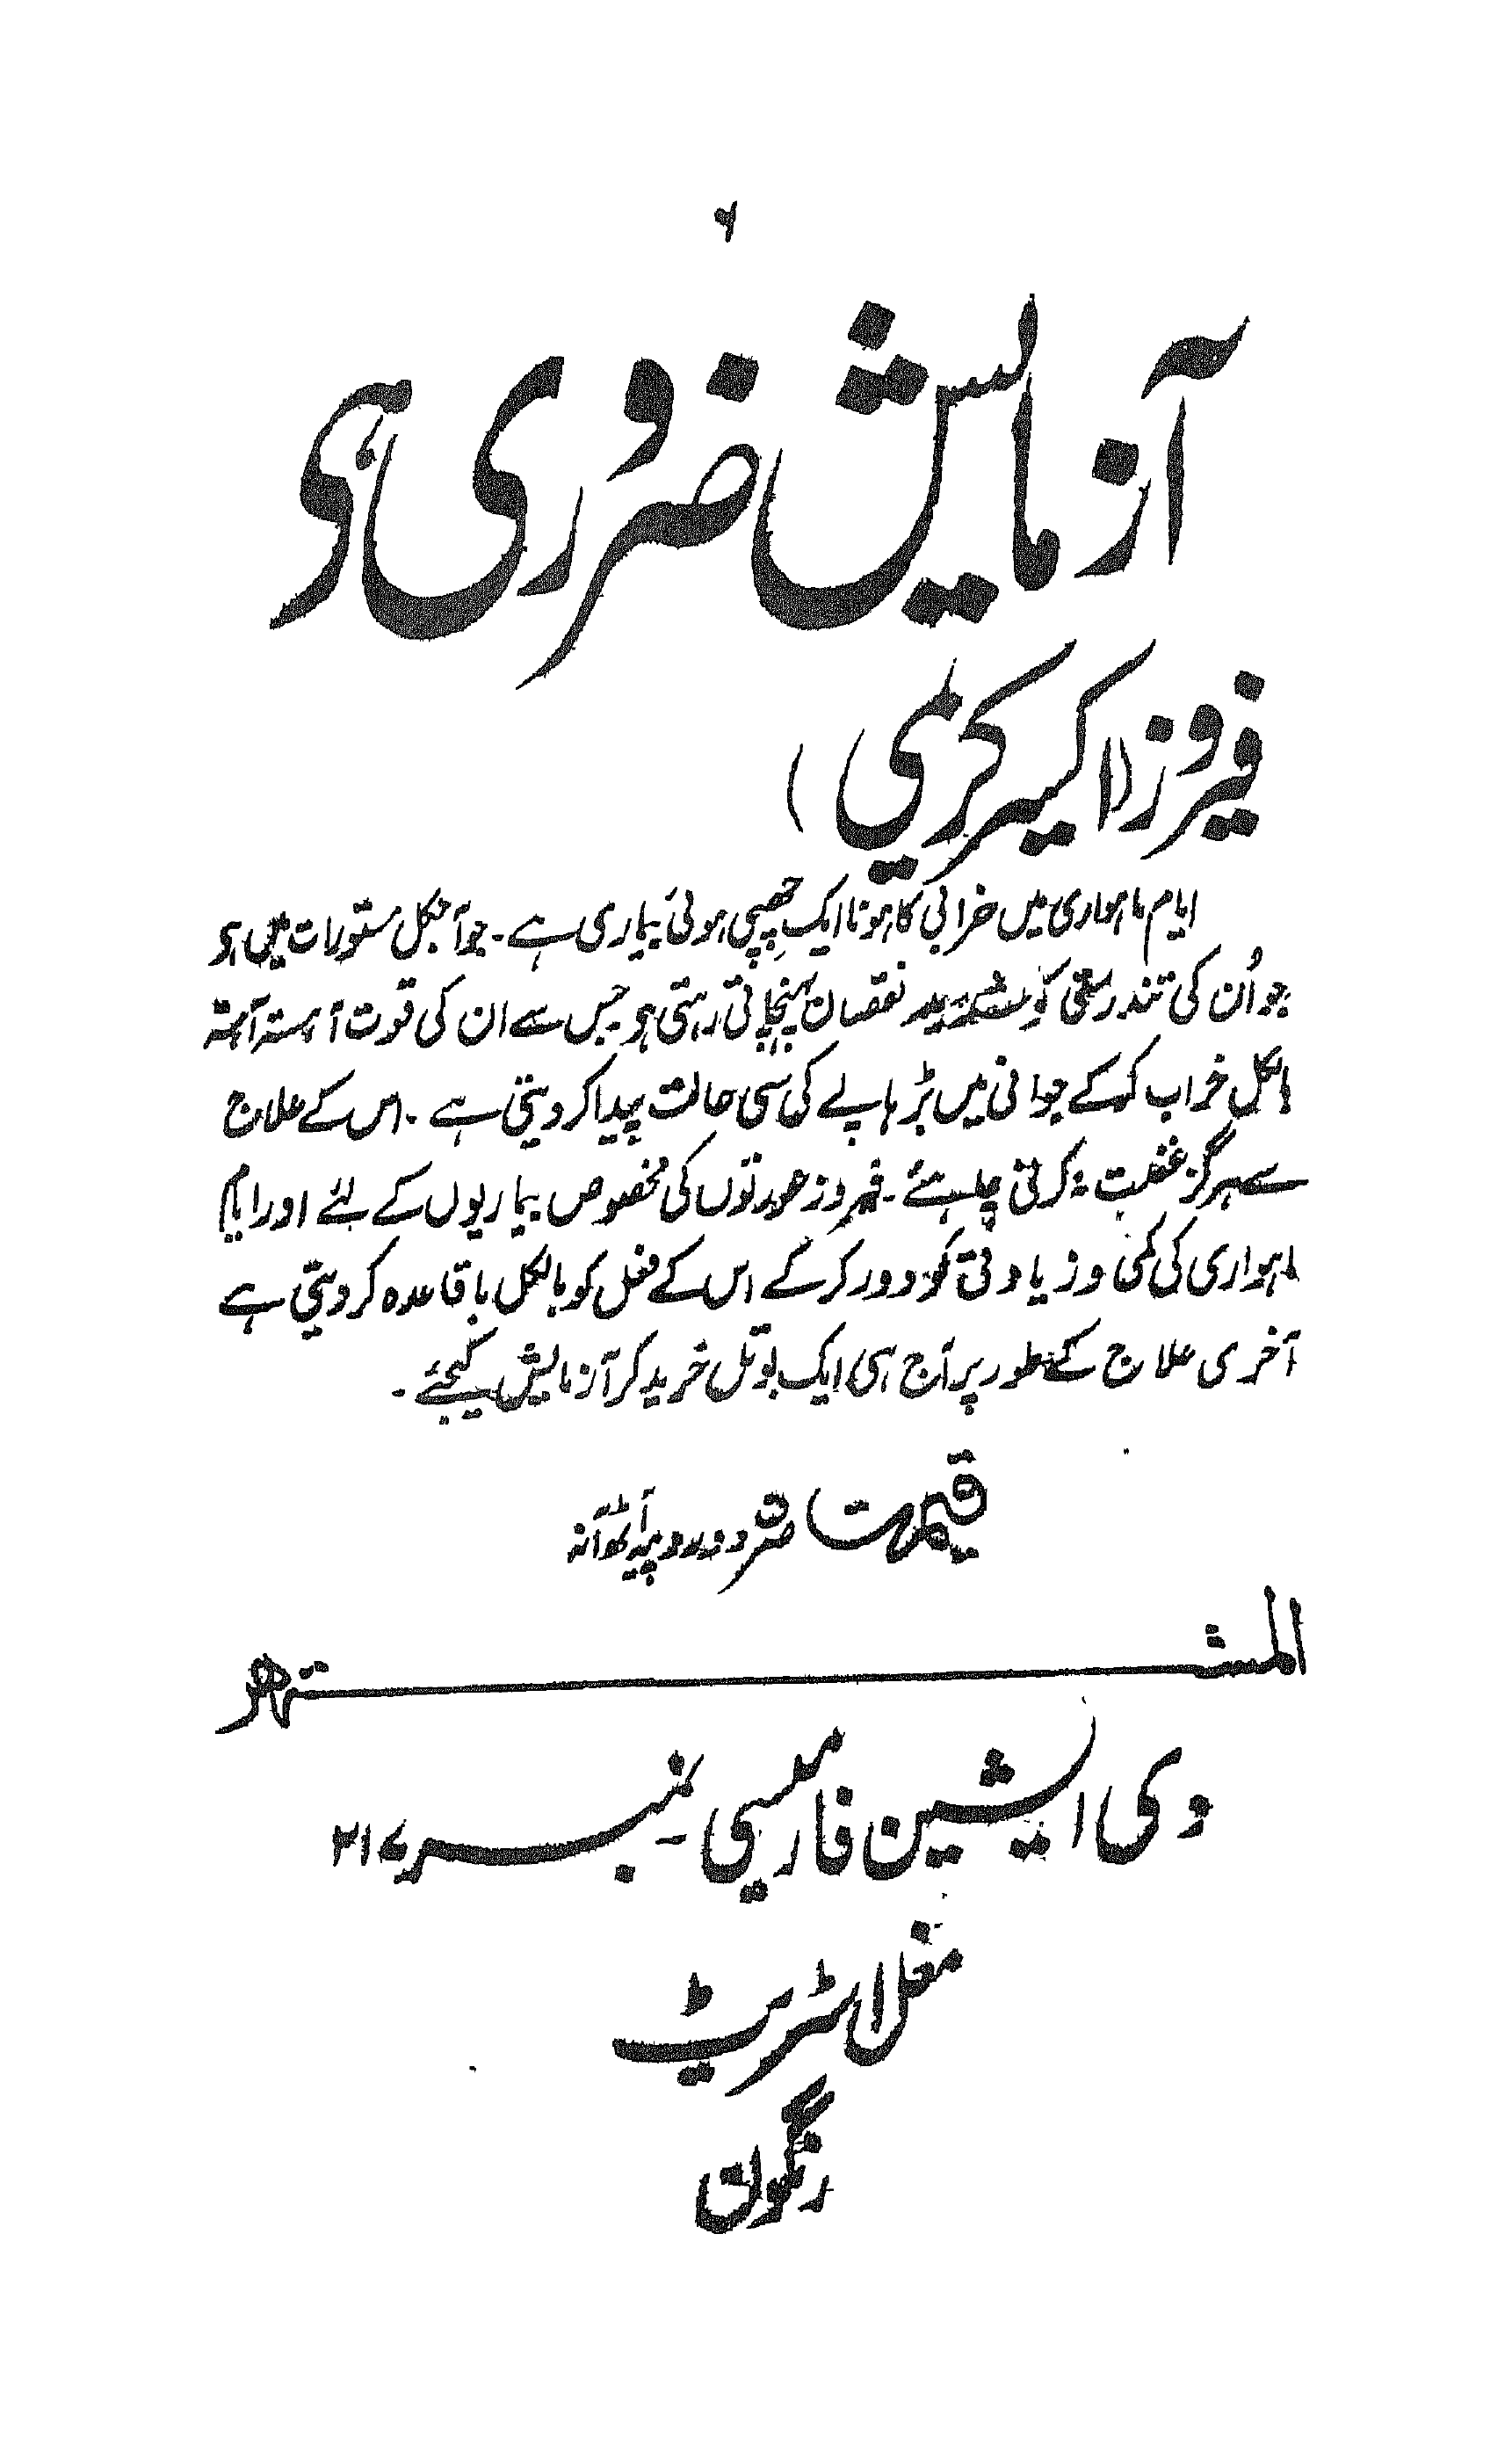 ۶
آزمایش ضروری ہی
فیروز (اکسیر کریمی)
ایام ماہواری میں خرابی کا ہونا ایک چھپی ہوئی بیماری ہے۔ جو آجکل مستورات میں ہی
جو اُن کی تندرستی کو شدید نقصان پہنچاتی رہتی ہی جس سے ان کی قوت آہستہ آہستہ
بالکل خراب کر کے جوانی میں بڑہاپے کی سی حالت پیدا کر دیتی ہے ۔ اس کے علاج
سے ہرگز غفلت نہ کرنی چاہئے ۔ فیروز عورتوں کی مخصوص بیماریوں کے لئے اور ایام
ماہواری کی کمی و زیادتی کو دور کر کے اس کے فعل کو بالکل باقاعدہ کر دیتی ہے
آخری علاج کے طور پر آج ہی ایک بوتل خرید کر آزمایش کیجئے ۔
قیمت صرف دو روپیہ آٹھ آنہ
المشتہر
دی ایشین فارمیسی ۔ نمبر ۲۱۷
مغل اسٹریٹ
رنگون